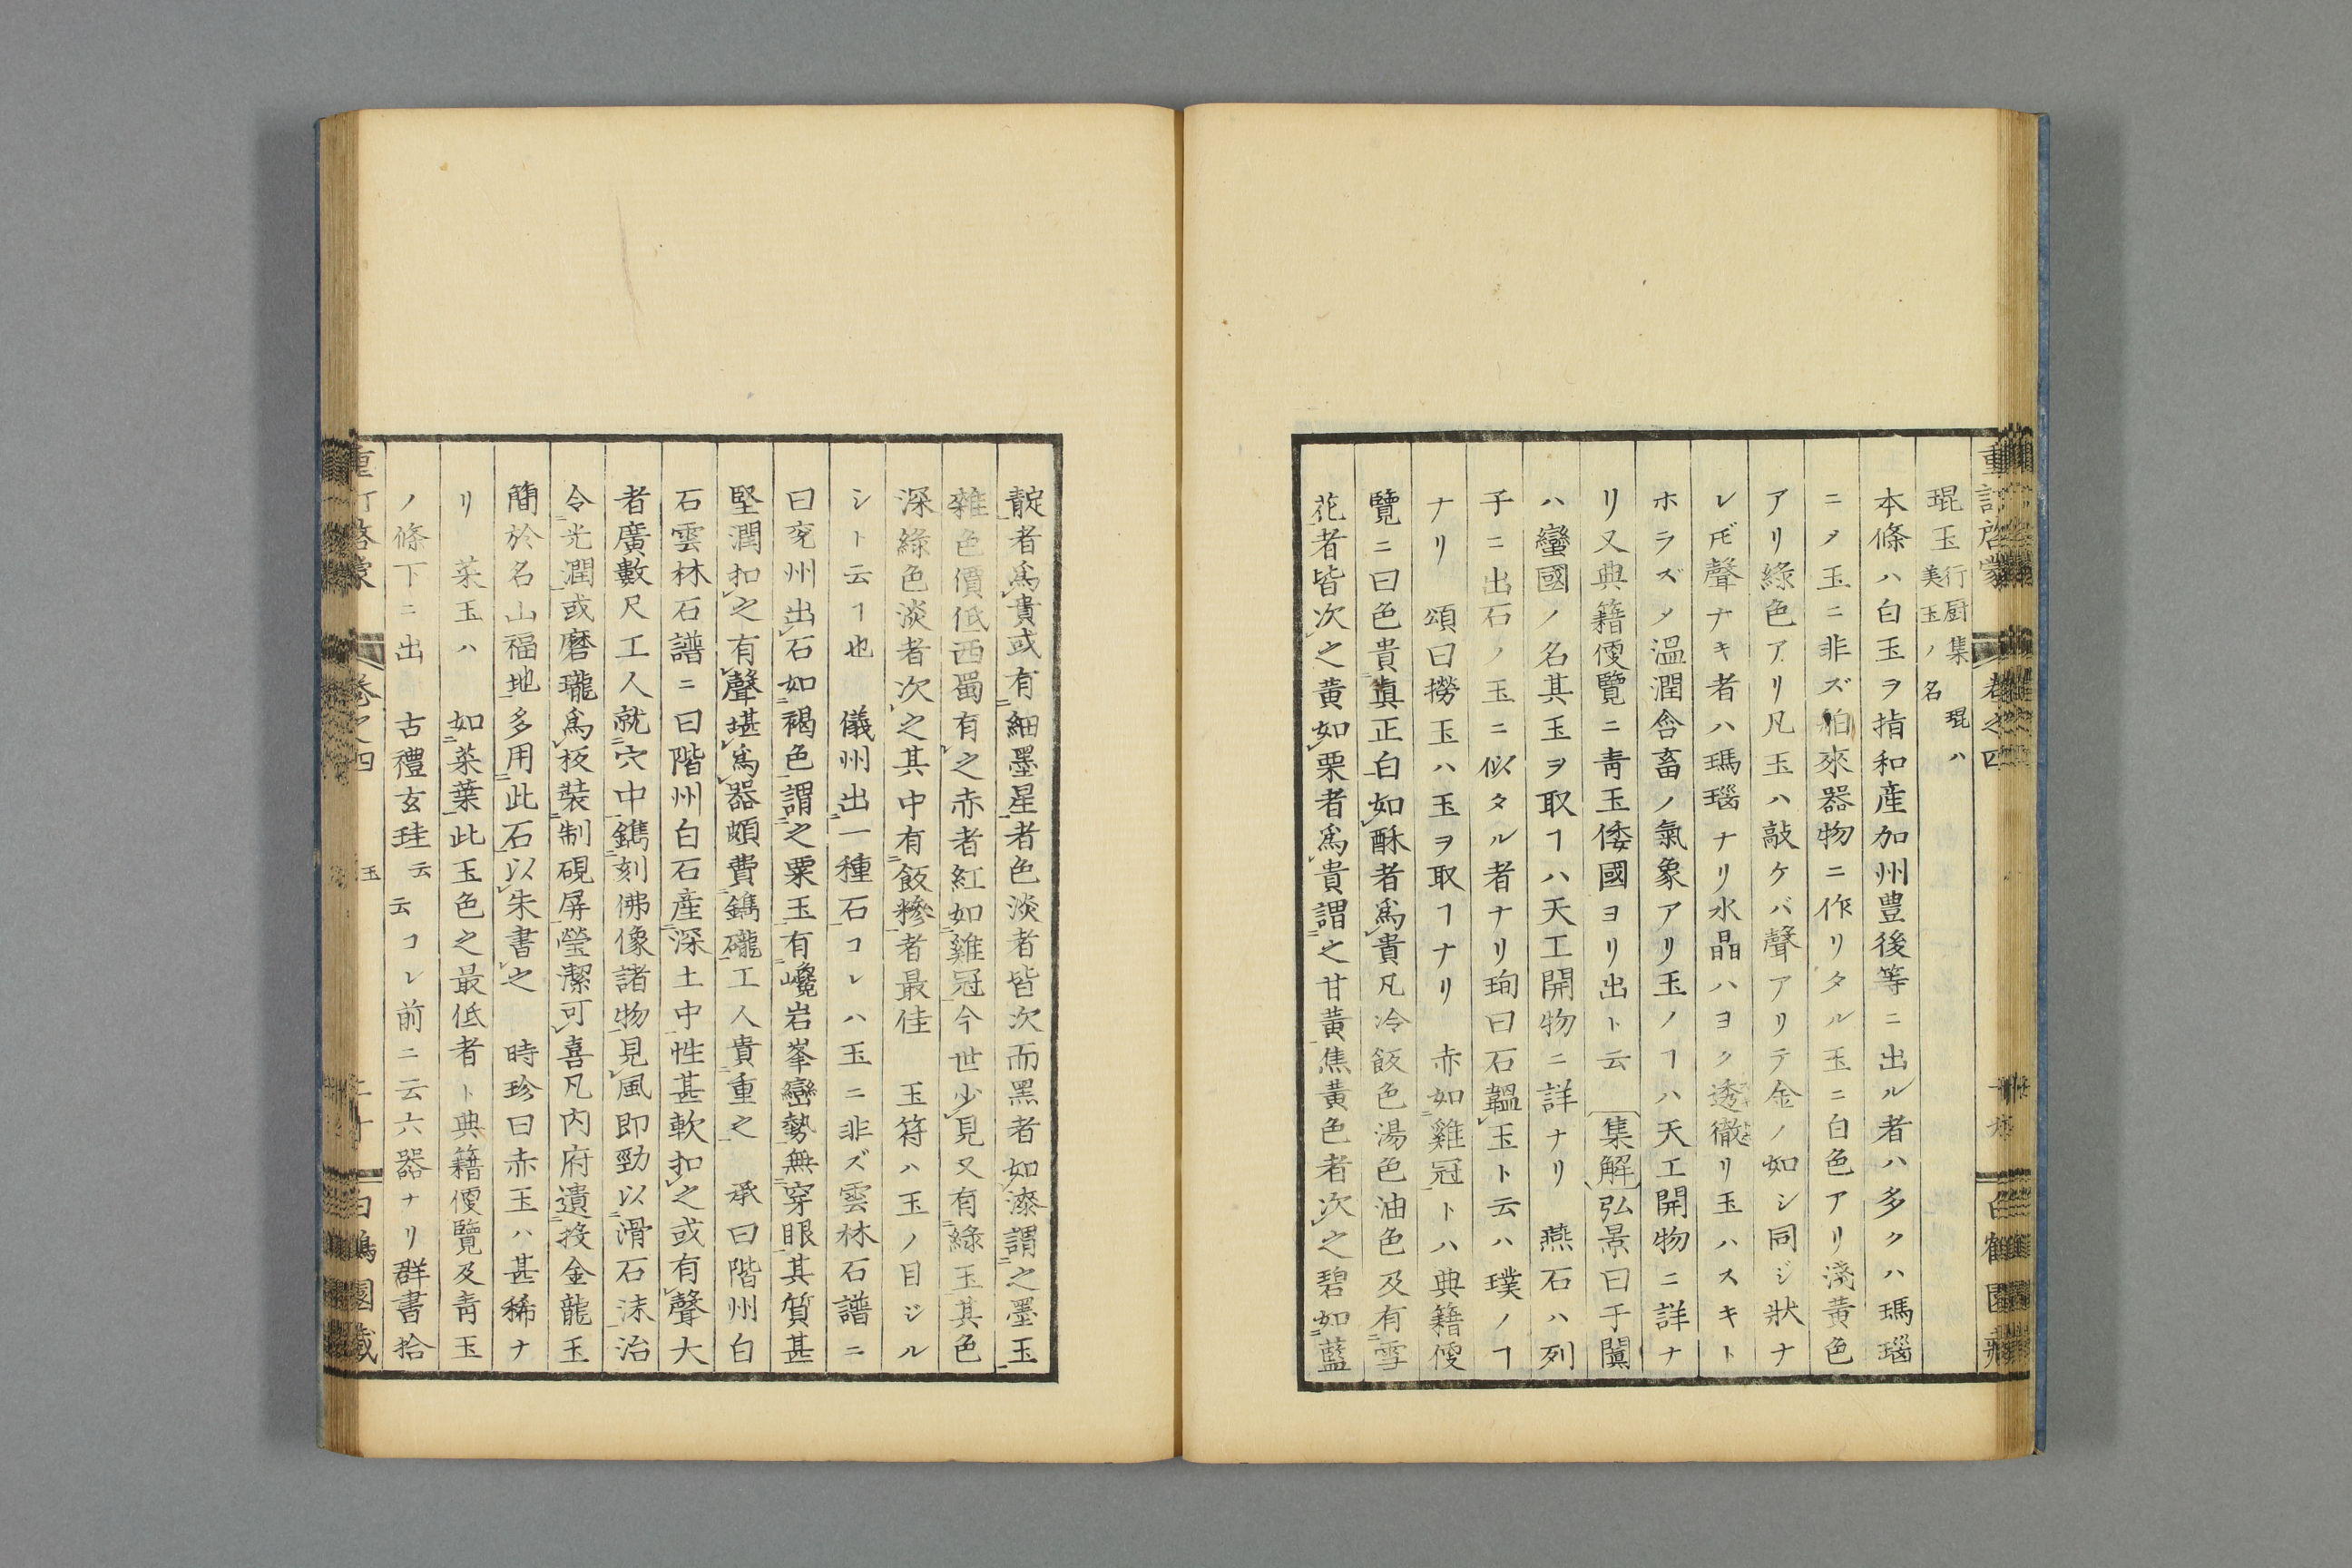 琨玉行厨集 琨ハ美玉ノ名
本條ハ白玉ヲ指和産加州豊後等ニ出ル者ハ多クハ瑪瑙
ニメ玉ニ非ズ舶來器物ニ作リタル玉ニ白色アリ淺黄色
アリ綠色アリ凡玉ハ敲ケバ聲アリテ金ノ如シ同ジ狀ナ
レ𪜈聲ナキ者ハ瑪瑙ナリ水晶ハヨク透徹リ玉ハスキト
ホラズメ溫潤含畜ノ氣象アリ玉ノヿハ天工開物ニ詳ナ
リ又典籍便覽ニ靑玉倭國ヨリ出ト云 集解弘景曰于闐
ハ蠻國ノ名其玉ヲ取ヿハ天工開物ニ詳ナリ 燕石ハ列
子ニ出石ノ玉ニ似タル者ナリ珣曰石韞玉ト云ハ璞ノヿ
ナリ 頌曰撈玉ハ玉ヲ取ヿナリ 赤如雞冠トハ典籍便
覽ニ曰色貴眞正白如酥者爲貴凡冷飯色湯色油色及有雪
花者皆次之黄如栗者爲貴謂之甘黄焦黄色者次之碧如藍
靛者爲貴或有細墨星者色淡者皆次而黑者如漆謂之墨玉
雜色價低西蜀有之赤者紅如雞冠今世少見又有綠玉其色
深綠色淡者次之其中有飯糝者最佳 玉符ハ玉ノ目ジル
シト云ヿ也 儀州出一種石コレハ玉ニ非ズ雲林石譜ニ
曰兗州出石如褐色謂之粟玉有巉岩峯巒勢無穿眼其質甚
堅潤扣之有聲堪爲器頗費鐫礲工人貴重之 承曰階州白
石雲林石譜ニ曰階州白石產深土中性甚軟扣之或有聲大
者廣數尺工人就穴中鐫刻佛像諸物見風即勁以滑石沫治
令光潤或磨瓏爲板裝制硯屏瑩潔可喜凡内府遺投金龍玉
簡於名山福地多用此石以朱書之 時珍曰赤玉ハ甚稀ナ
リ 菜玉ハ 如菜葉此玉色之最低者ト典籍便覽及靑玉
ノ條下ニ出 古禮玄珪云云コレ前ニ云六器ナリ群書拾